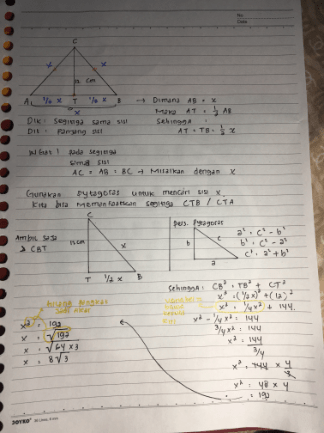 No.
Date
C
x x
12 cm
A 1/2 x T 1/2 x B → Dimana AB = x
x Maka AT = 1/2 AB
Dik : Segitiga sama sisi Sehingga :
Dit : Panjang sisi AT = TB = 1/2 x
pada segitiga
sama sisi
AC = AB = BC → Misalkan dengan x
Gunakan pytagoras untuk mencari sisi x
Kita bisa memanfaatkan segitiga CTB / CTA
C
Ambil saja
Δ CBT
12 cm x
T 1/2 x B
Pytagoras
b c
a
a² = c² - b²
b² = c² - a²
c² = a² + b²
Sehingga : CB² = TB² + CT²
x² = (1/2 x)² + (12)²
x² = 1/4 x² + 144
x² - 1/4 x² = 144
3/4 x² = 144
x² = 144
3/4
x² = 144 x 4/3
x² = 48 x 4
= 192
x² = 192
x = √192
x = √64 x 3
x = 8√3
JOYKO